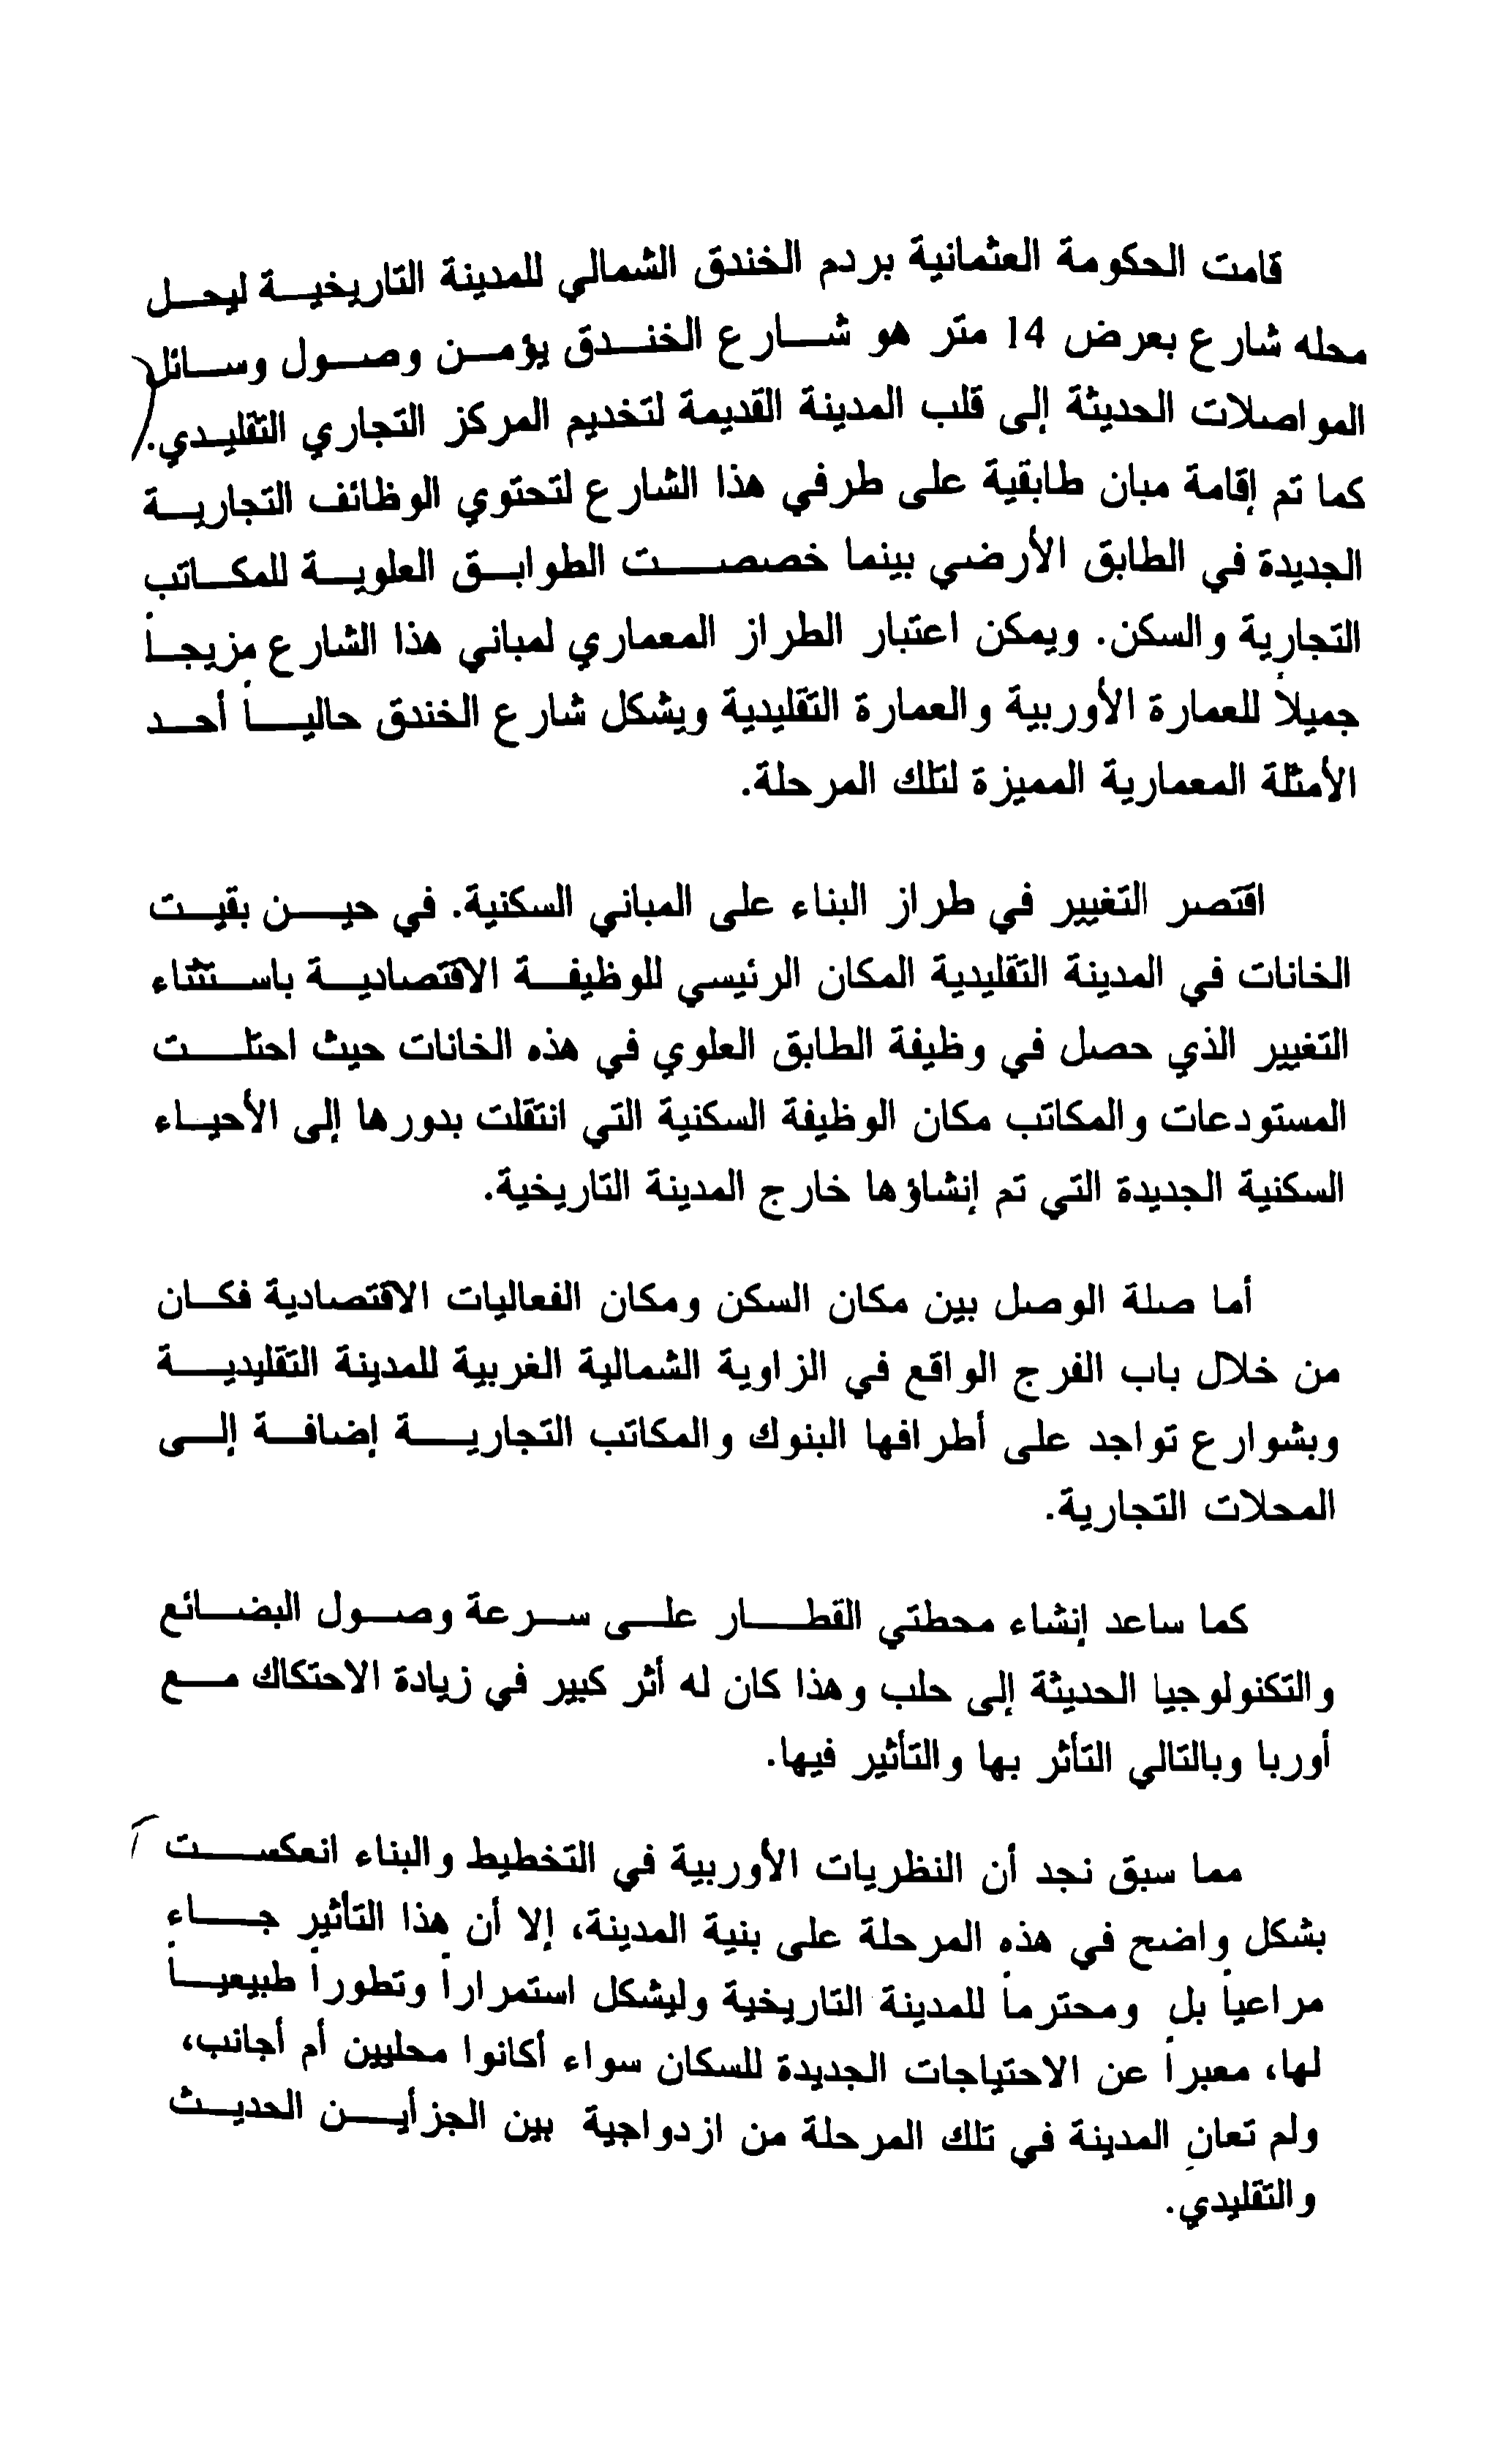 قامت الحكومة العثمانية بردم الخندق الشمالي للمدينة التاريخية ليحل
محله شارع بعرض 14 متر هو شارع الخندق يؤمن وصول وسائل
المواصلات الحديثة إلى قلب المدينة القديمة لتخديم المركز التجاري التقليدي.
كما تم إقامة مبان طابقية على طرفي هذا الشارع لتحتوي الوظائف التجارية
الجديدة في الطابق الأرضي بينما خصصت الطوابق العلوية للمكاتب
التجارية والسكن. ويمكن اعتبار الطراز المعماري لمباني هذا الشارع مزيجاً
جميلاً للعمارة الأوربية والعمارة التقليدية ويشكل شارع الخندق حالياً أحد
الأمثلة المعمارية المميزة لتلك المرحلة.
اقتصر التغيير في طراز البناء على المباني السكنية. في حين بقيت
الخانات في المدينة التقليدية المكان الرئيسي للوظيفة الاقتصادية باستثناء
التغيير الذي حصل في وظيفة الطابق العلوي في هذه الخانات حيث احتلت
المستودعات والمكاتب مكان الوظيفة السكنية التي انتقلت بدورها إلى الأحياء
السكنية الجديدة التي تم إنشاؤها خارج المدينة التاريخية.
أما صلة الوصل بين مكان السكن ومكان الفعاليات الاقتصادية فكان
من خلال باب الفرج الواقع في الزاوية الشمالية الغربية للمدينة التقليدية
وبشوارع تواجد على أطرافها البنوك والمكاتب التجارية إضافة إلى
المحلات التجارية.
كما ساعد إنشاء محطتي القطار على سرعة وصول البضائع
والتكنولوجيا الحديثة إلى حلب وهذا كان له أثر كبير في زيادة الاحتكاك مع
أوربا وبالتالي التأثر بها والتأثير فيها.
مما سبق نجد أن النظريات الأوربية في التخطيط والبناء انعكست
بشكل واضح في هذه المرحلة على بنية المدينة، إلا أن هذا التأثير جاء
مراعياً بل ومحترماً للمدينة التاريخية وليشكل استمراراً وتطوراً طبيعياً
لها، معبراً عن الاحتياجات الجديدة للسكان سواء أكانوا محليين أم أجانب،
ولم تعانِ المدينة في تلك المرحلة من ازدواجية بين الجزأين الحديث
والتقليدي.